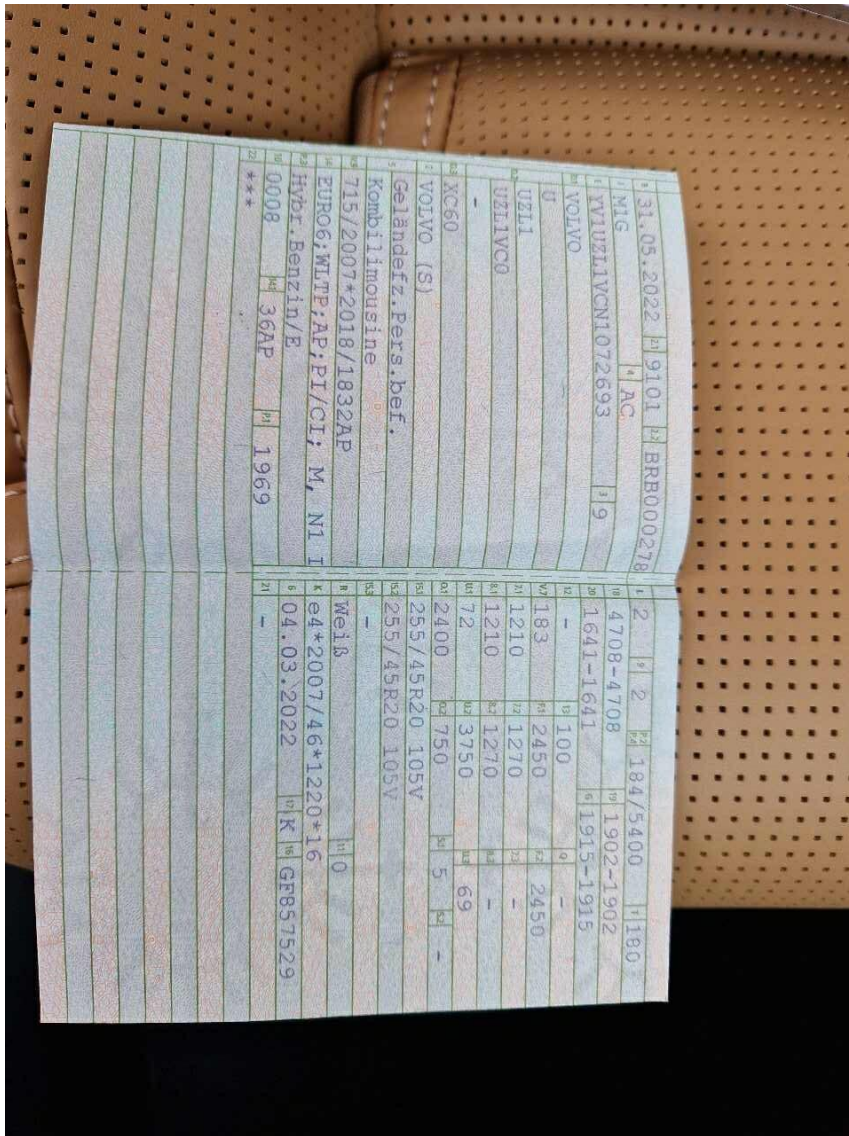 B 31.05.2022 2.1 9101 2.2 BRB000278
J M1G 4 AC
E YV1UZL1VCN1072693 3 9
D.1 VOLVO
D.2 U
UZL1
UZL1VC0
-
D.3 XC60
2 VOLVO (S)
5 Geländefz.Pers.bef.
Kombilimousine
V.9 715/2007*2018/1832AP
14 EURO6;WLTP;AP;PI/CI; M, N1 I
P.3 Hybr.Benzin/E
10 0008 14.1 36AP P.1 1969
22 ***
L 2 9 2 P.2 P.4 184/5400 T 180
18 4708-4708 19 1902-1902
20 1641-1641 G 1915-1915
12 - 13 100 Q -
V.7 183 F.1 2450 F.2 2450
7.1 1210 7.2 1270 7.3 -
8.1 1210 8.2 1270 8.3 -
U.1 72 U.2 3750 U.3 69
O.1 2400 O.2 750 S.1 5 S.2 -
15.1 255/45R20 105V
15.2 255/45R20 105V
15.3 -
R Weiß 11 0
K e4*2007/46*1220*16
6 04.03.2022 17 K 16 GF857529
21 -